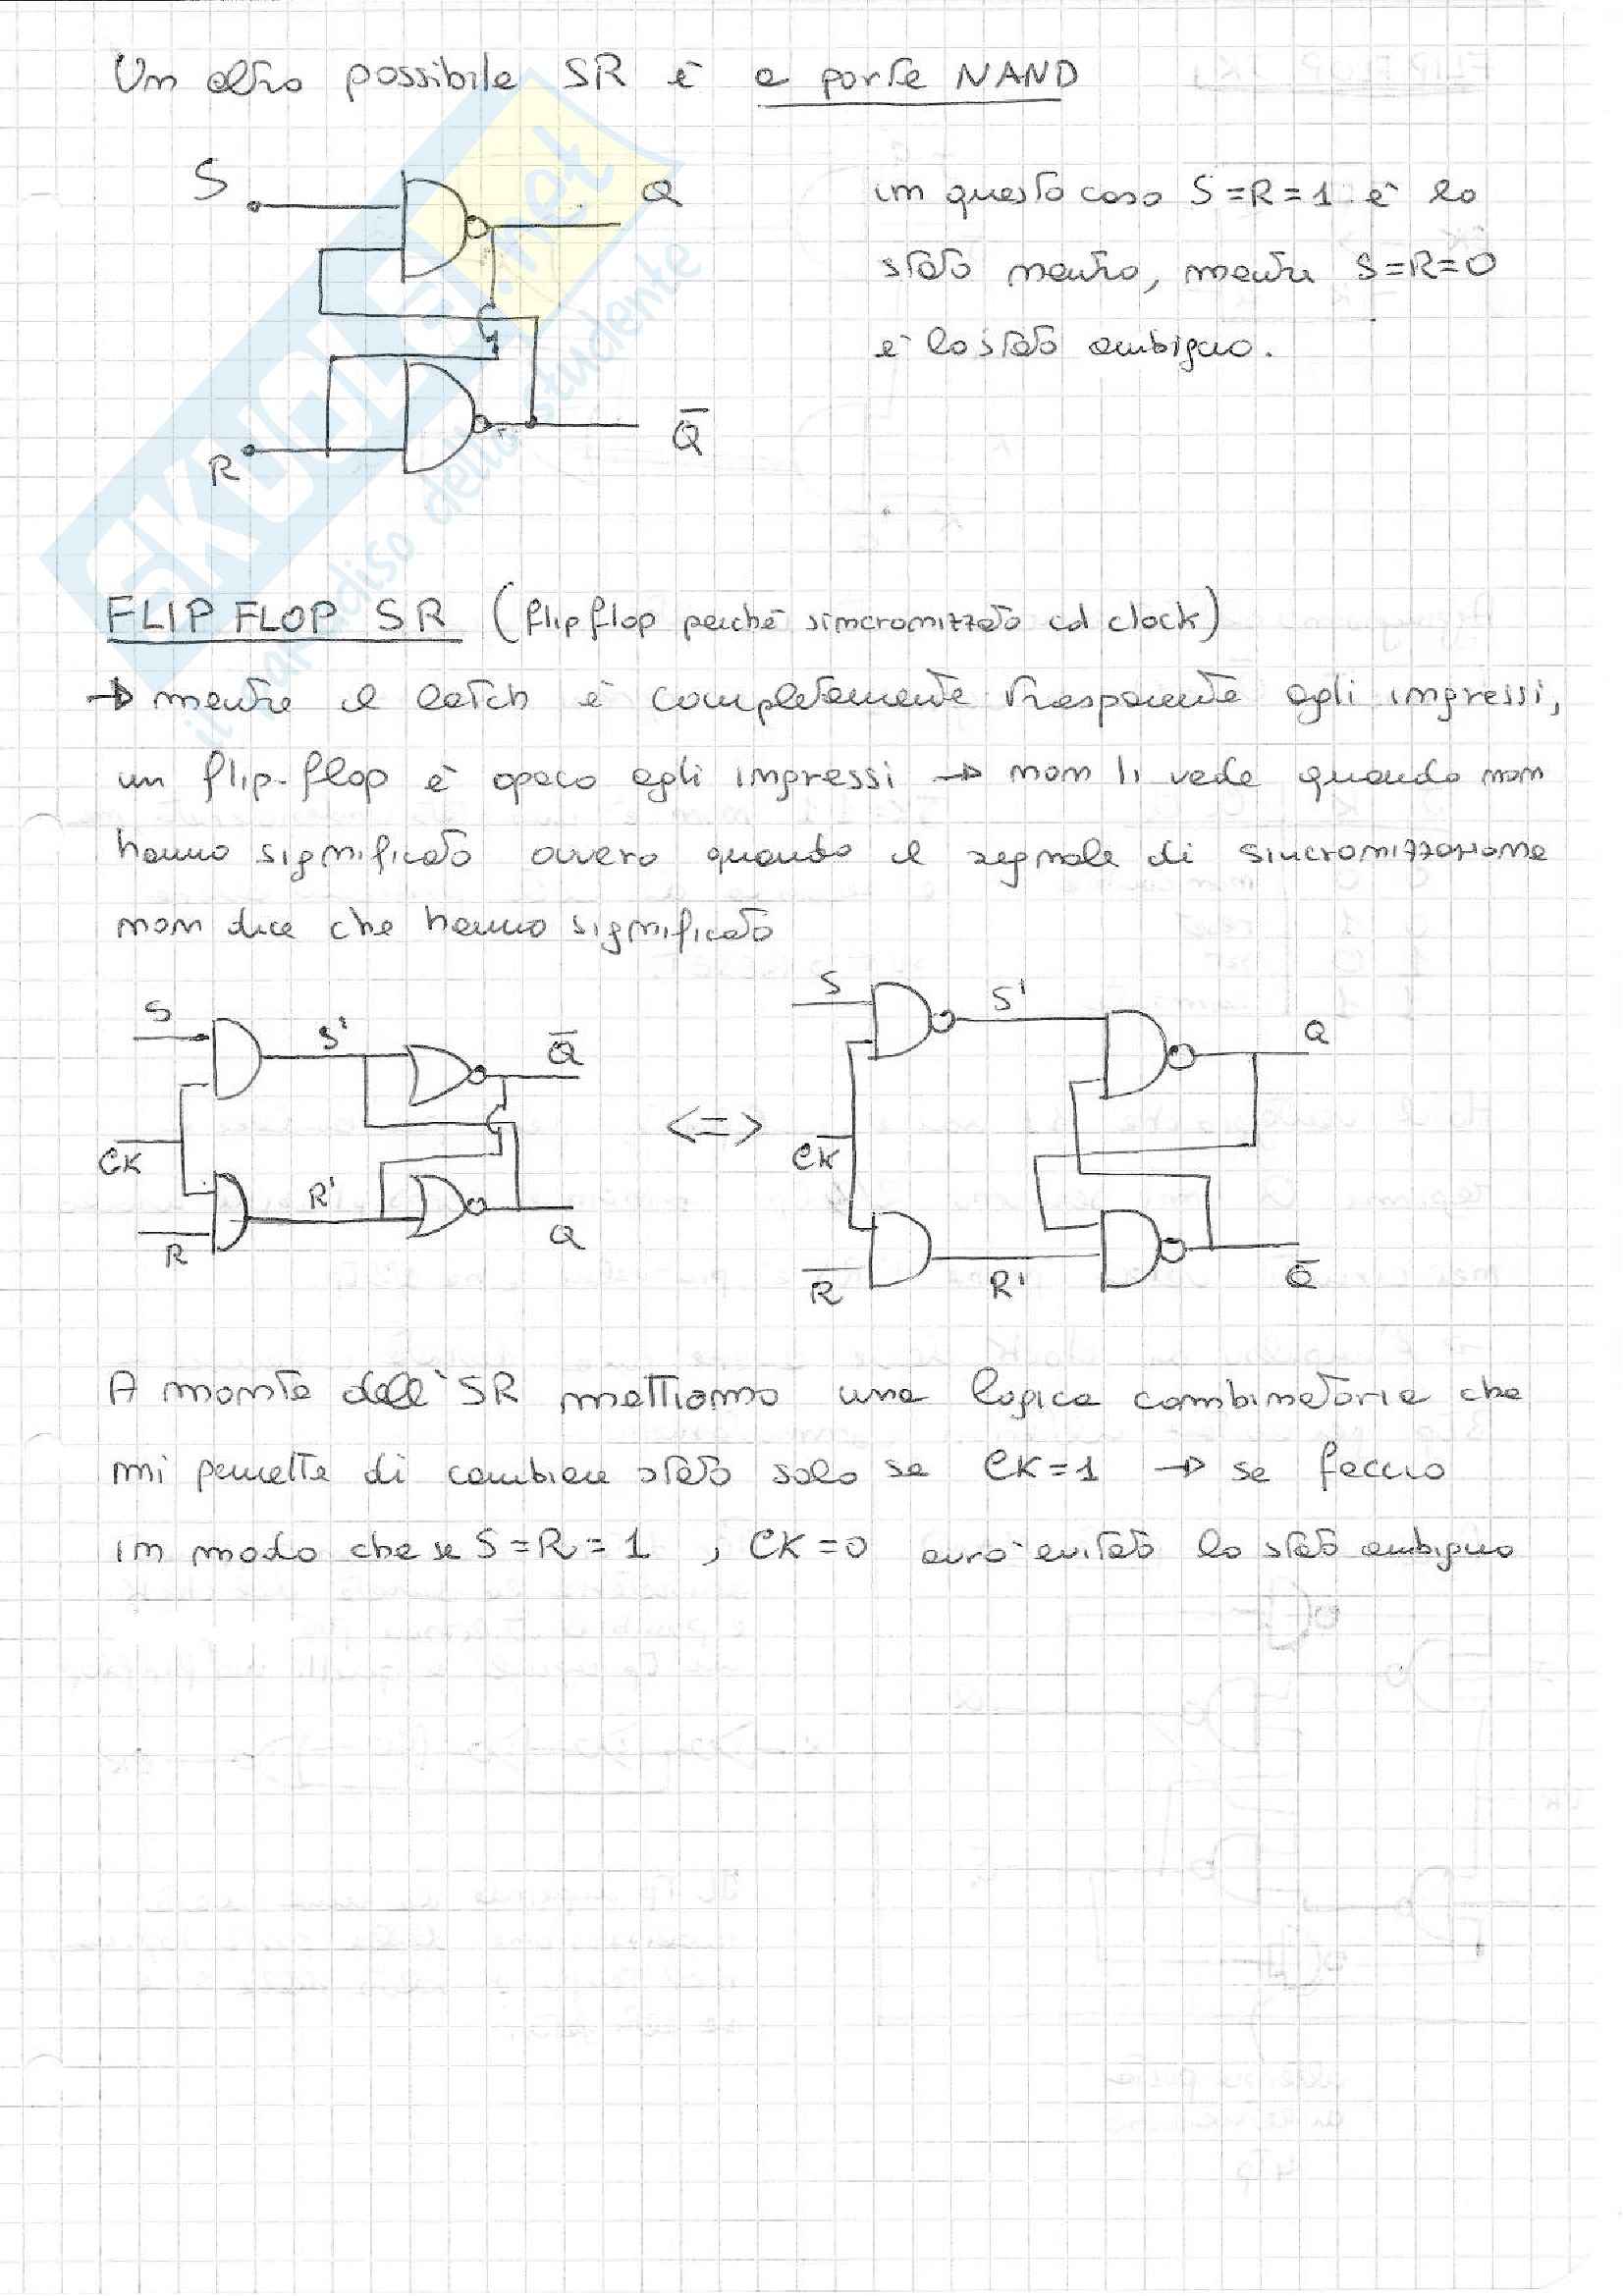 Un altro possibile SR è a porte NAND
S
Q
in questo caso S=R=1 è lo
stato neutro, mentre S=R=0
è lo stato ambiguo.
R
Q̅
SKUOLA.net
il paradiso dello studente
FLIP FLOP SR (flip flop perché sincronizzato col clock)
→ mentre il latch è completamente trasparente agli ingressi,
un flip-flop è opaco agli ingressi → non li vede quando non
hanno significato ovvero quando il segnale di sincronizzazione
non dice che hanno significato
S
S'
Q̅
CK
R
R'
Q
<=>
S
S'
Q
CK
R
R'
Q̅
A monte dell'SR mettiamo una logica combinatoria che
mi permette di cambiare stato solo se CK=1 → se faccio
in modo che se S=R=1 , CK=0 avrò evitato lo stato ambiguo